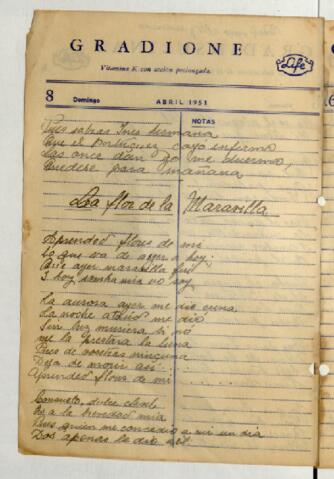 GRADIONE
Life
Vitamina K con acción prolongada.
8 Domingo ABRIL 1951
NOTAS
Pues sabras Ines hermana
Que el Portuguez cayo enfermo
Las once dan yo me duermo
Quedese para mañana
La flor de la Maravilla
Aprended flores de mi
Lo que va de ayer a hoy
Que ayer maravilla fui
Y hoy sombra mia no soy
La aurora ayer me dio cuna
La noche ataud me dio
Sin luz muriera si no
me la prestara la luna
Pues de vosotras ninguna
Deja de morir asi
Aprended flores de mi
Consuelo, dulce
es a la brevedad mia
Pues quien me concedio a mi un dia
Dos apenas le dio